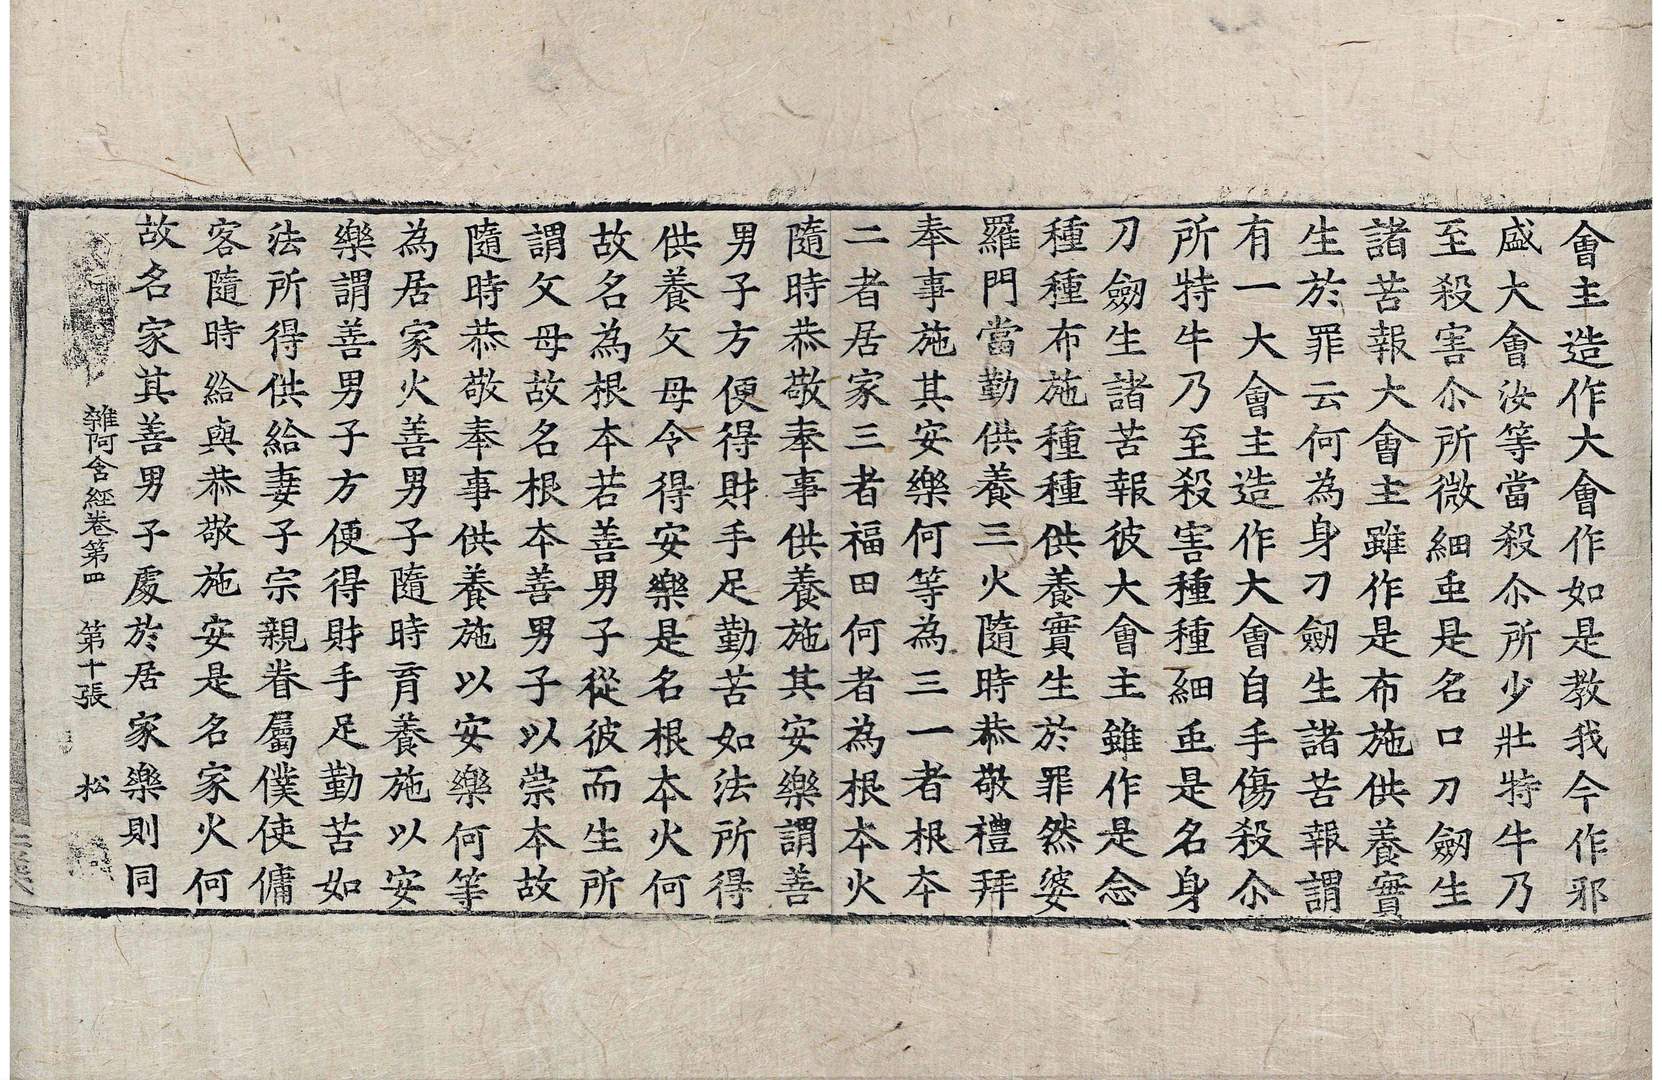 會主造作大會作如是教我今作邪
盛大會汝等當殺尒所少壯特牛乃
至殺害尒所微細虫是名口刀劒生
諸苦報大會主雖作是布施供養實
生於罪云何為身刀劒生諸苦報謂
有一大會主造作大會自手傷殺尒
所特牛乃至殺害種種細虫是名身
刀劒生諸苦報彼大會主雖作是念
種種布施種種供養實生於罪然婆
羅門當勤供養三火隨時恭敬禮拜
奉事施其安樂何等為三一者根本
二者居家三者福田何者為根本火
隨時恭敬奉事供養施其安樂謂善
男子方便得財手足勤苦如法所得
供養父母令得安樂是名根本火何
故名為根本若善男子從彼而生所
謂父母故名根本善男子以崇本故
隨時恭敬奉事供養施以安樂何等
為居家火善男子隨時育養施以安
樂謂善男子方便得財手足勤苦如
法所得供給妻子宗親眷屬僕使傭
客隨時給與恭敬施安是名家火何
故名家其善男子處於居家樂則同
雜阿含經卷第四　第十張　松